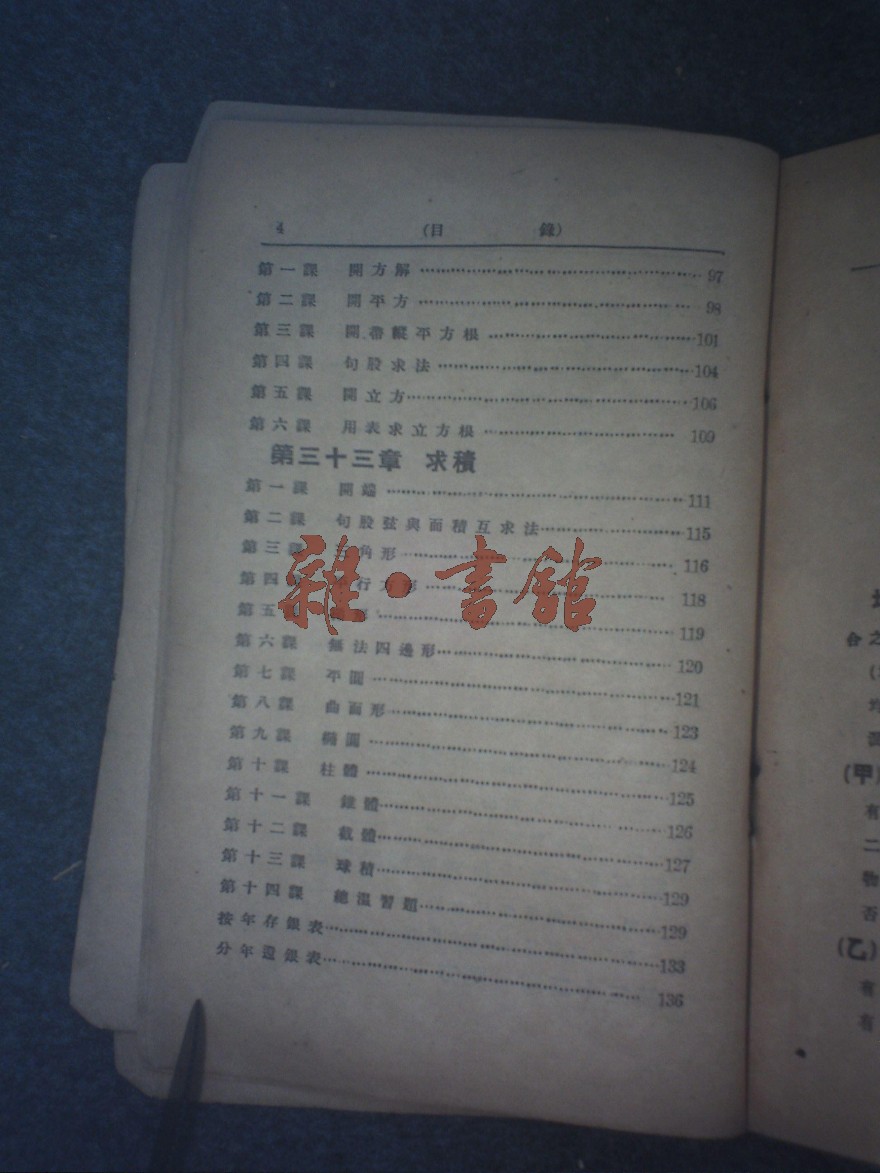 4 (目 錄)
第一課 開方解 97
第二課 開平方 98
第三課 開帶縱平方根 101
第四課 句股求法 104
第五課 開立方 106
第六課 用表求立方根 109
第三十三章 求積
第一課 開端 111
第二課 句股弦與面積互求法 115
第三課 三角形 116
第四 行方形 118
第五 119
第六課 無法四邊形 120
第七課 平圓 121
第八課 曲面形 123
第九課 橢圓 124
第十課 柱體 125
第十一課 錐體 126
第十二課 截體 127
第十三課 球積 129
第十四課 總溫習題 129
按年存銀表 133
分年還銀表 136
雜·書館
合之
(甲)
有
二
物
否
(乙)
有
有